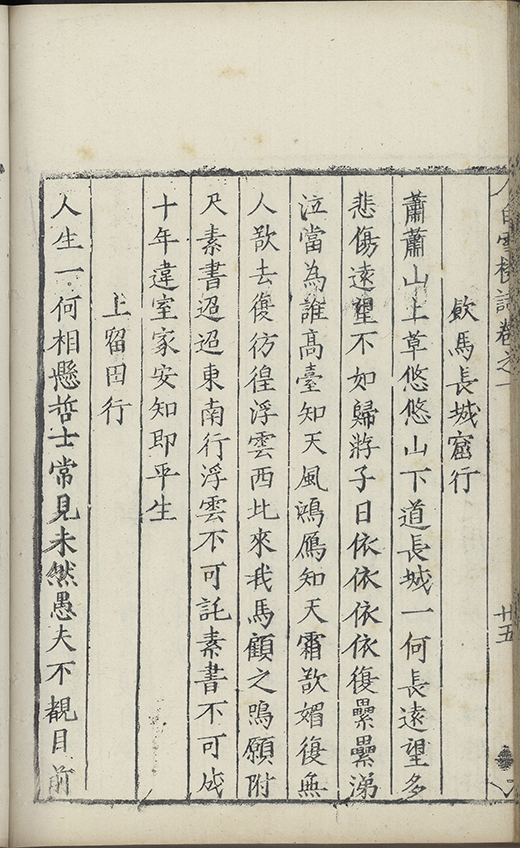 白雪樓詩卷之一
廿五
飲馬長城窟行
蕭蕭山上草悠悠山下道長城一何長遠望多
悲傷遠望不如歸游子日依依依依復纍纍涕
泣當為誰高臺知天風鴻鴈知天霜歆媚復無
人歆去復彷徨浮雲西北來我馬顧之鳴願附
尺素書迢迢東南行浮雲不可託素書不可成
十年違室家安知即平生
上留田行
人生一何相懸哲士常見未然愚夫不覩目前